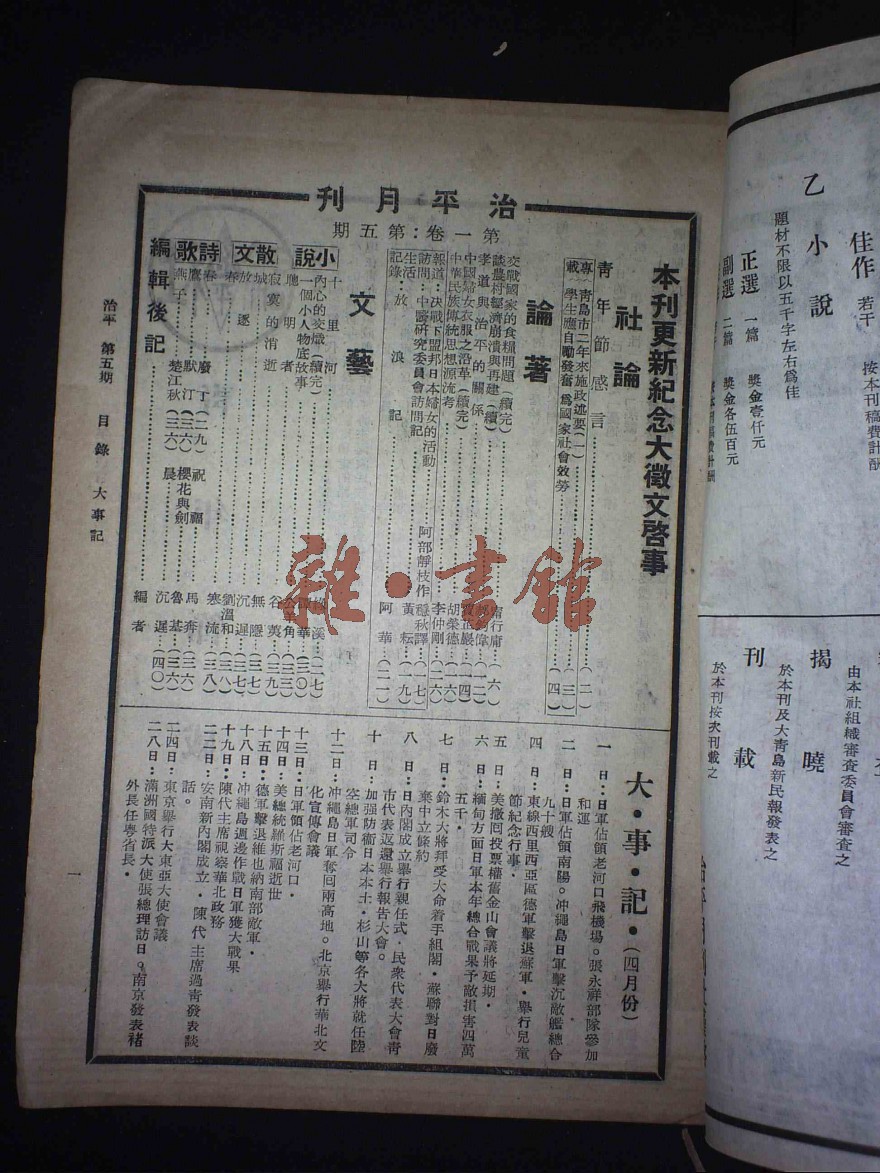 治平月刊
第一卷：第五期
本刊更新紀念大徵文啓事
社論
青年節感言……（二）
專載 青島市二年來施政述要（一）……（三）
學生應自動發奮為國家社會効勞……（四）
論著
交戰國家的食糧問題（續完）……行庸（六）
談農村經濟崩潰與再建（續）……（一二）
孝道與治平的關係……正嚴（一四）
中國婦女衣服之沿革（續完）……胡榮德（一六）
中華民族傳統思想源流考……李仲剛（二六）
報道：決戰下盟邦日本婦女的活動……阿部靜枝作 穩秋譯（一七）
訪問：中醫研究委員會訪問記……黃耘（一九）
生活記錄：放浪記……阿華（二一）
文藝
小說
十里河……溪（二七）
內心的交熾（續完）……華（三〇）
一個小人物底故事……羊角（三三）
聰明者……谷萸（三九）
散文
寂寞的消逝……無隱（三七）
城……沉遲（三七）
放逐……劉溫和（三八）
春……寒流（三八）
詩歌
春……廢丁（二九）
祝福……馬奔（三六）
鷹……默汀（三六）
櫻花與劍……魯基（三六）
燕子……楚江秋（三六）
晨……沉遲（四〇）
編輯後記……編者
大・事・記・（四月份）
一日：日軍佔領老河口飛機場。張永祥部隊參加
和運
二日：日軍佔領南陽。沖繩島日軍擊沉敵艦總合
九十艘
四日：東線西里西亞區德軍擊退蘇軍・舉行兒童
節紀念行事・
五日：美撤回投票權舊金山會議將延期・
六日：緬甸方面日軍本年總合戰果予敵損害四萬
五千・
七日：鈴木大將拜受大命着手組閣・蘇聯對日廢
棄中立條約
八日：日內閣成立舉行親任式・民衆代表大會青
市代表返還舉行報告大會。
十日：加强防衛日本本土・杉山等各大將就任陸
空總軍司令
十二日：沖繩島日軍奪回兩高地。北京舉行華北文
化宣傳會議
十三日：日軍領佔老河口・
十四日：美總統羅斯福逝世
十五日：德軍擊退維也納南部敵軍・
十八日：沖繩島週邊作戰日軍獲大戰果
十九日：陳代主席視察華北政務
二二日：安南新內閣成立・陳代主席過靑發表談
話。
二四日：東京舉行大東亞大使會議
二八日：滿洲國特派大使張總理訪日。南京發表褚
外長任粵省長・
治平 第五期 目錄 大事記
一
佳作 若干 按本刊稿費計酬
乙 小說
題材不限以五千字左右爲佳
正選 一篇 獎金壹仟元
副選 二篇 獎金各伍百元
由本社組織審查委員會審查之
揭曉
於本刊及大靑島新民報發表之
刊載
於本刊按次刊載之
雜・書館